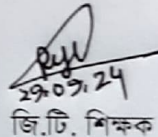 29.09.24
জি.টি. শিক্ষক